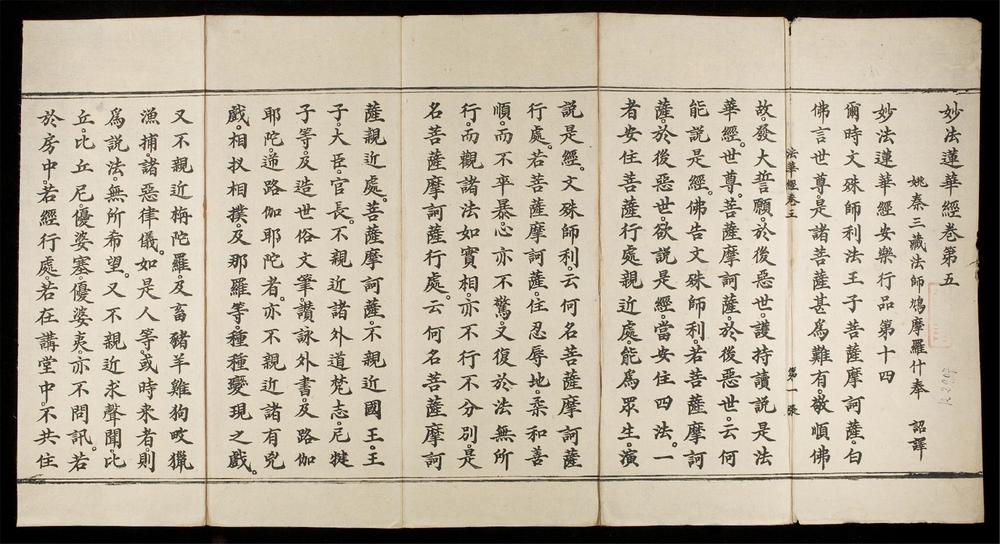 妙法蓮華經卷第五
姚秦三藏法師鳩摩羅什奉　詔譯
妙法蓮華經安樂行品第十四
爾時文殊師利法王子菩薩摩訶薩。白
佛言世尊。是諸菩薩甚爲難有。敬順佛
法華經卷五　第一張
故。發大誓願。於後惡世。護持讀說是法
華經。世尊。菩薩摩訶薩。於後惡世。云何
能說是經。佛告文殊師利。若菩薩摩訶
薩。於後惡世。欲說是經。當安住四法。一
者安住菩薩行處親近處。能爲眾生。演
說是經。文殊師利。云何名菩薩摩訶薩
行處。若菩薩摩訶薩。住忍辱地。柔和善
順。而不卒暴。心亦不驚。又復於法無所
行。而觀諸法如實相。亦不行不分別。是
名菩薩摩訶薩行處。云何名菩薩摩訶
薩親近處。菩薩摩訶薩。不親近國王。王
子。大臣。官長。不親近諸外道梵志。尼揵
子等。及造世俗文筆。讚詠外書。及路伽
耶陀。逆路伽耶陀者。亦不親近諸有兇
戲。相扠相撲。及那羅等。種種變現之戲。
又不親近栴陀羅。及畜豬羊雞狗畋獵
漁捕。諸惡律儀。如是人等。或時來者。則
爲說法。無所希望。又不親近求聲聞。比
丘。比丘尼。優婆塞。優婆夷。亦不問訊。若
於房中。若經行處。若在講堂中。不共住